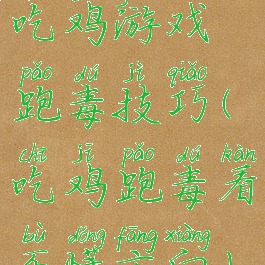 吃鸡游戏
pǎo dú jì qiǎo
跑毒技巧(
chī jī pǎo dú kàn
吃鸡跑毒看
bù dǒng fāng xiàng
不懂方向)